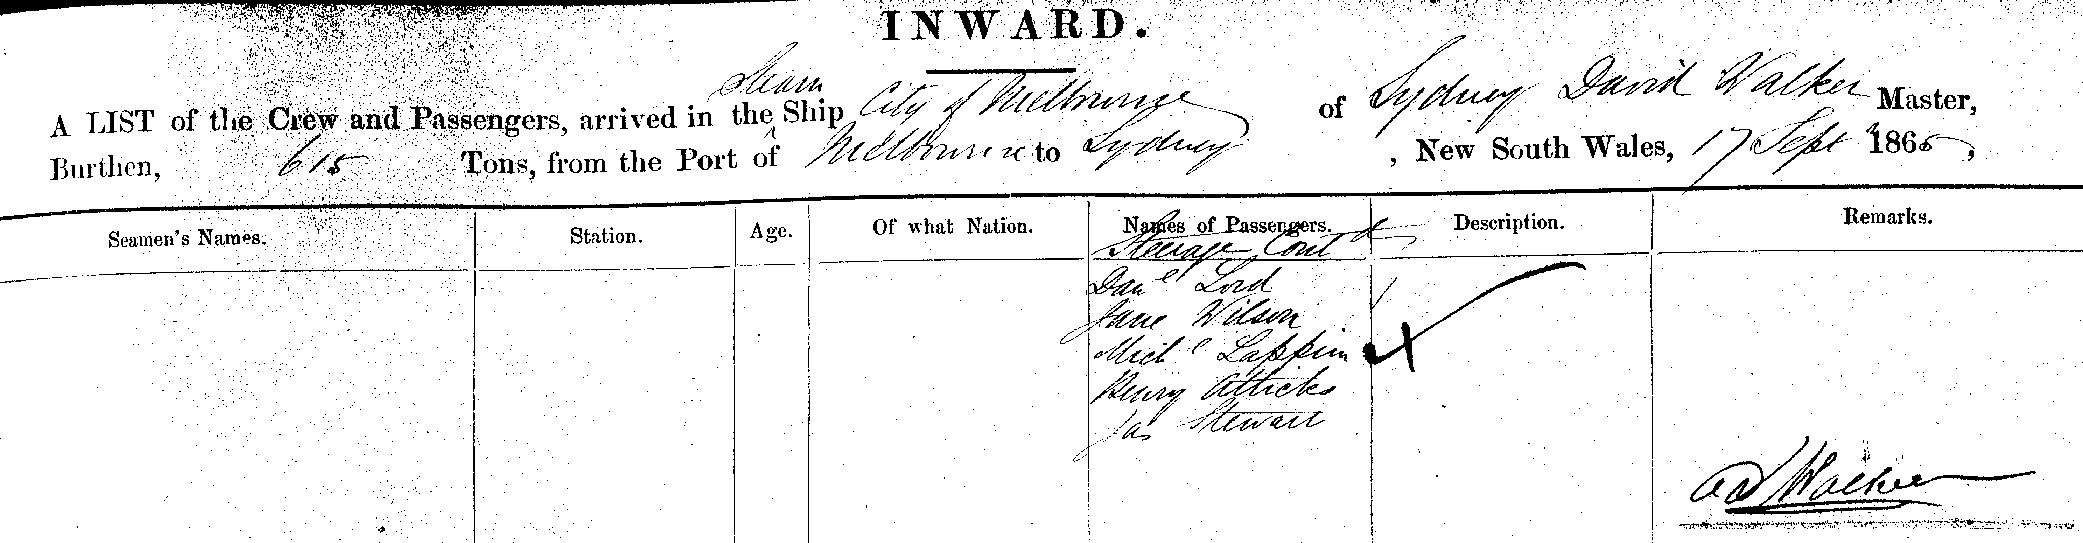 INWARD.
Steam
A LIST of the Crew and Passengers, arrived in the ^ Ship City of Melbourne of Sydney David Walker Master,
Burthen, 615 Tons, from the Port of Melbourne to Sydney, New South Wales, 17 Sept 1865,
Seamen's Names. Station. Age. Of what Nation. Names of Passengers. Description. Remarks.
Steerage Contd
Danl Lord
Jane Wilson
Michl Lappin
Henry Atticks
Jas Stewart
Walker